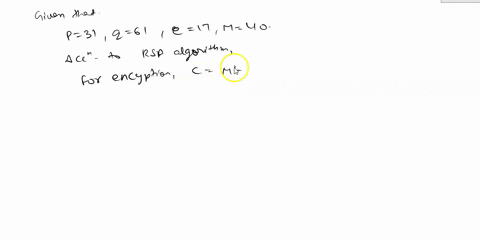 Given that.
P=31, q=61, e=17, M=40.
Accⁿ to RSA algorithm,
for encyption, C = M